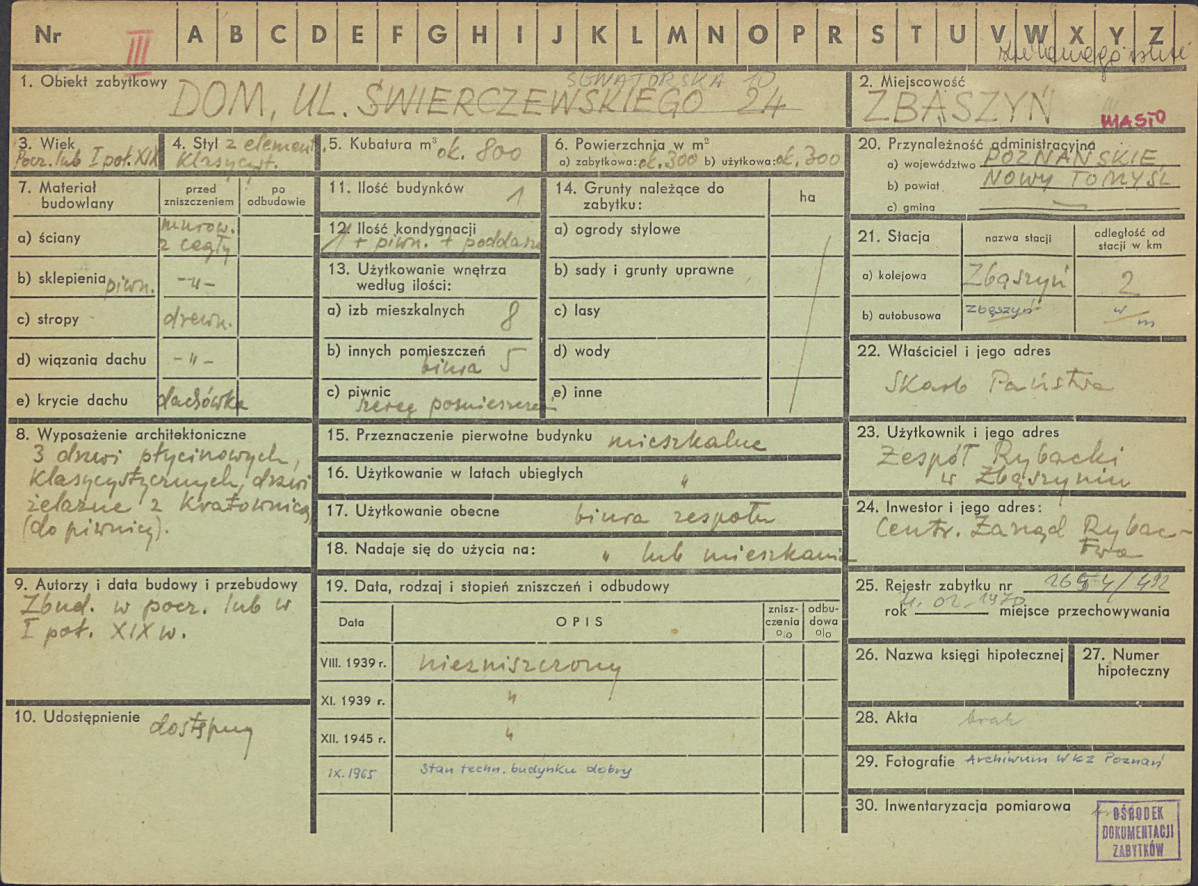 Nr III A B C D E F G H I J K L M N O P R S T U V W X Y Z
1. Obiekt zabytkowy
SENATORSKA 10
DOM, UL. ŚWIERCZEWSKIEGO 24
2. Miejscowość
ZBĄSZYŃ
MIASTO
3. Wiek
Pocz. lub I poł. XIX
4. Styl z element.
klasycyst.
5. Kubatura m³ ok. 800
6. Powierzchnia w m²
a) zabytkowa: ok. 300 b) użytkowa: ok. 300
20. Przynależność administracyjna
a) województwo POZNAŃSKIE
b) powiat NOWY TOMYŚL
c) gmina —
7. Materiał budowlany
przed zniszczeniem
po odbudowie
a) ściany murow. z cegły
b) sklepienia piwn. -"-
c) stropy drewn.
d) wiązania dachu -"-
e) krycie dachu dachówka
11. Ilość budynków 1
12. Ilość kondygnacji
1 + piwn. + poddasze
13. Użytkowanie wnętrza
według ilości:
a) izb mieszkalnych 8
b) innych pomieszczeń
biura 5
c) piwnic
szereg pomieszczeń
14. Grunty należące do
zabytku:
ha
a) ogrody stylowe
b) sady i grunty uprawne
c) lasy
d) wody
e) inne
21. Stacja
nazwa stacji
odległość od
stacji w km
a) kolejowa Zbąszyń 2
b) autobusowa Zbąszyń w/m
22. Właściciel i jego adres
Skarb Państwa
8. Wyposażenie architektoniczne
3 drzwi płycinowych,
klasycystycznych, drzwi
żelazne z kratownicą
(do piwnicy).
15. Przeznaczenie pierwotne budynku mieszkalne
16. Użytkowanie w latach ubiegłych "
17. Użytkowanie obecne biura zespołu
18. Nadaje się do użycia na: " lub mieszkania
23. Użytkownik i jego adres
Zespół Rybacki
w Zbąszyniu
24. Inwestor i jego adres:
Centr. Zarząd Rybac-
twa
9. Autorzy i data budowy i przebudowy
Zbud. w pocz. lub w
I poł. XIX w.
10. Udostępnienie dostępny
19. Data, rodzaj i stopień zniszczeń i odbudowy
Data
OPIS
znisz-
czenia
o/o
odbu-
dowa
o/o
VIII. 1939 r. niezniszczony
XI. 1939 r. "
XII. 1945 r. "
IX. 1965 Stan techn. budynku dobry
25. Rejestr zabytku nr
rok 02. 1970 miejsce przechowywania
26. Nazwa księgi hipotecznej
27. Numer
hipoteczny
28. Akta brak
29. Fotografie Archiwum WKZ Poznań
30. Inwentaryzacja pomiarowa
OŚRODEK
DOKUMENTACJI
ZABYTKÓW